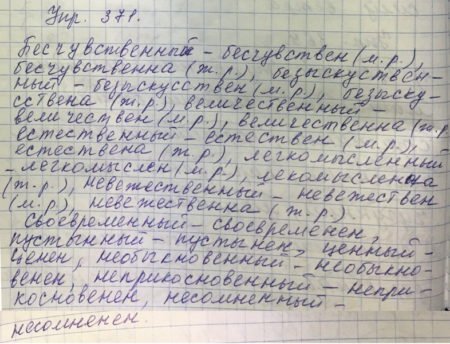 Упр. 371.
Бесчувственный – бесчувствен (м.р.),
бесчувственна (ж.р.), безыскуствен-
ный – безыскусствен (м.р.), безыску-
сствена (ж.р.), величественный –
величествен (м.р.), величественна (ж.р.
естественный – естествен (м.р.),
естествена (ж.р.), легкомысленный
– легкомыслен (м.р.), лекомысленна
(ж.р.), невежественный – невежествен
(м.р.), невежественна (ж.р.).
Своевременный – своевременен,
пустынный – пустынен, ценный –
ценен, необыкновенный – необыкно-
венен, неприкосновенный – непри-
косновенен, несомненный –
несомненен.